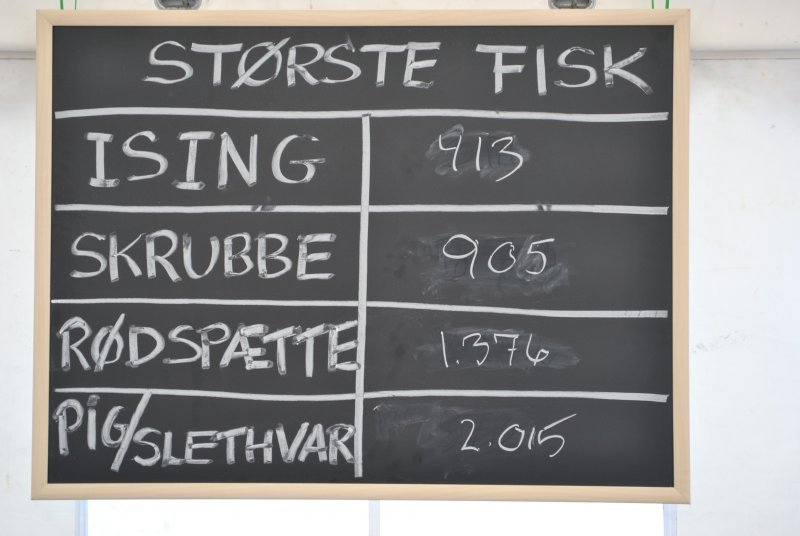 STØRSTE FISK
ISING 913
SKRUBBE 905
RØDSPÆTTE 1.376
PIG/SLETHVAR 2.015